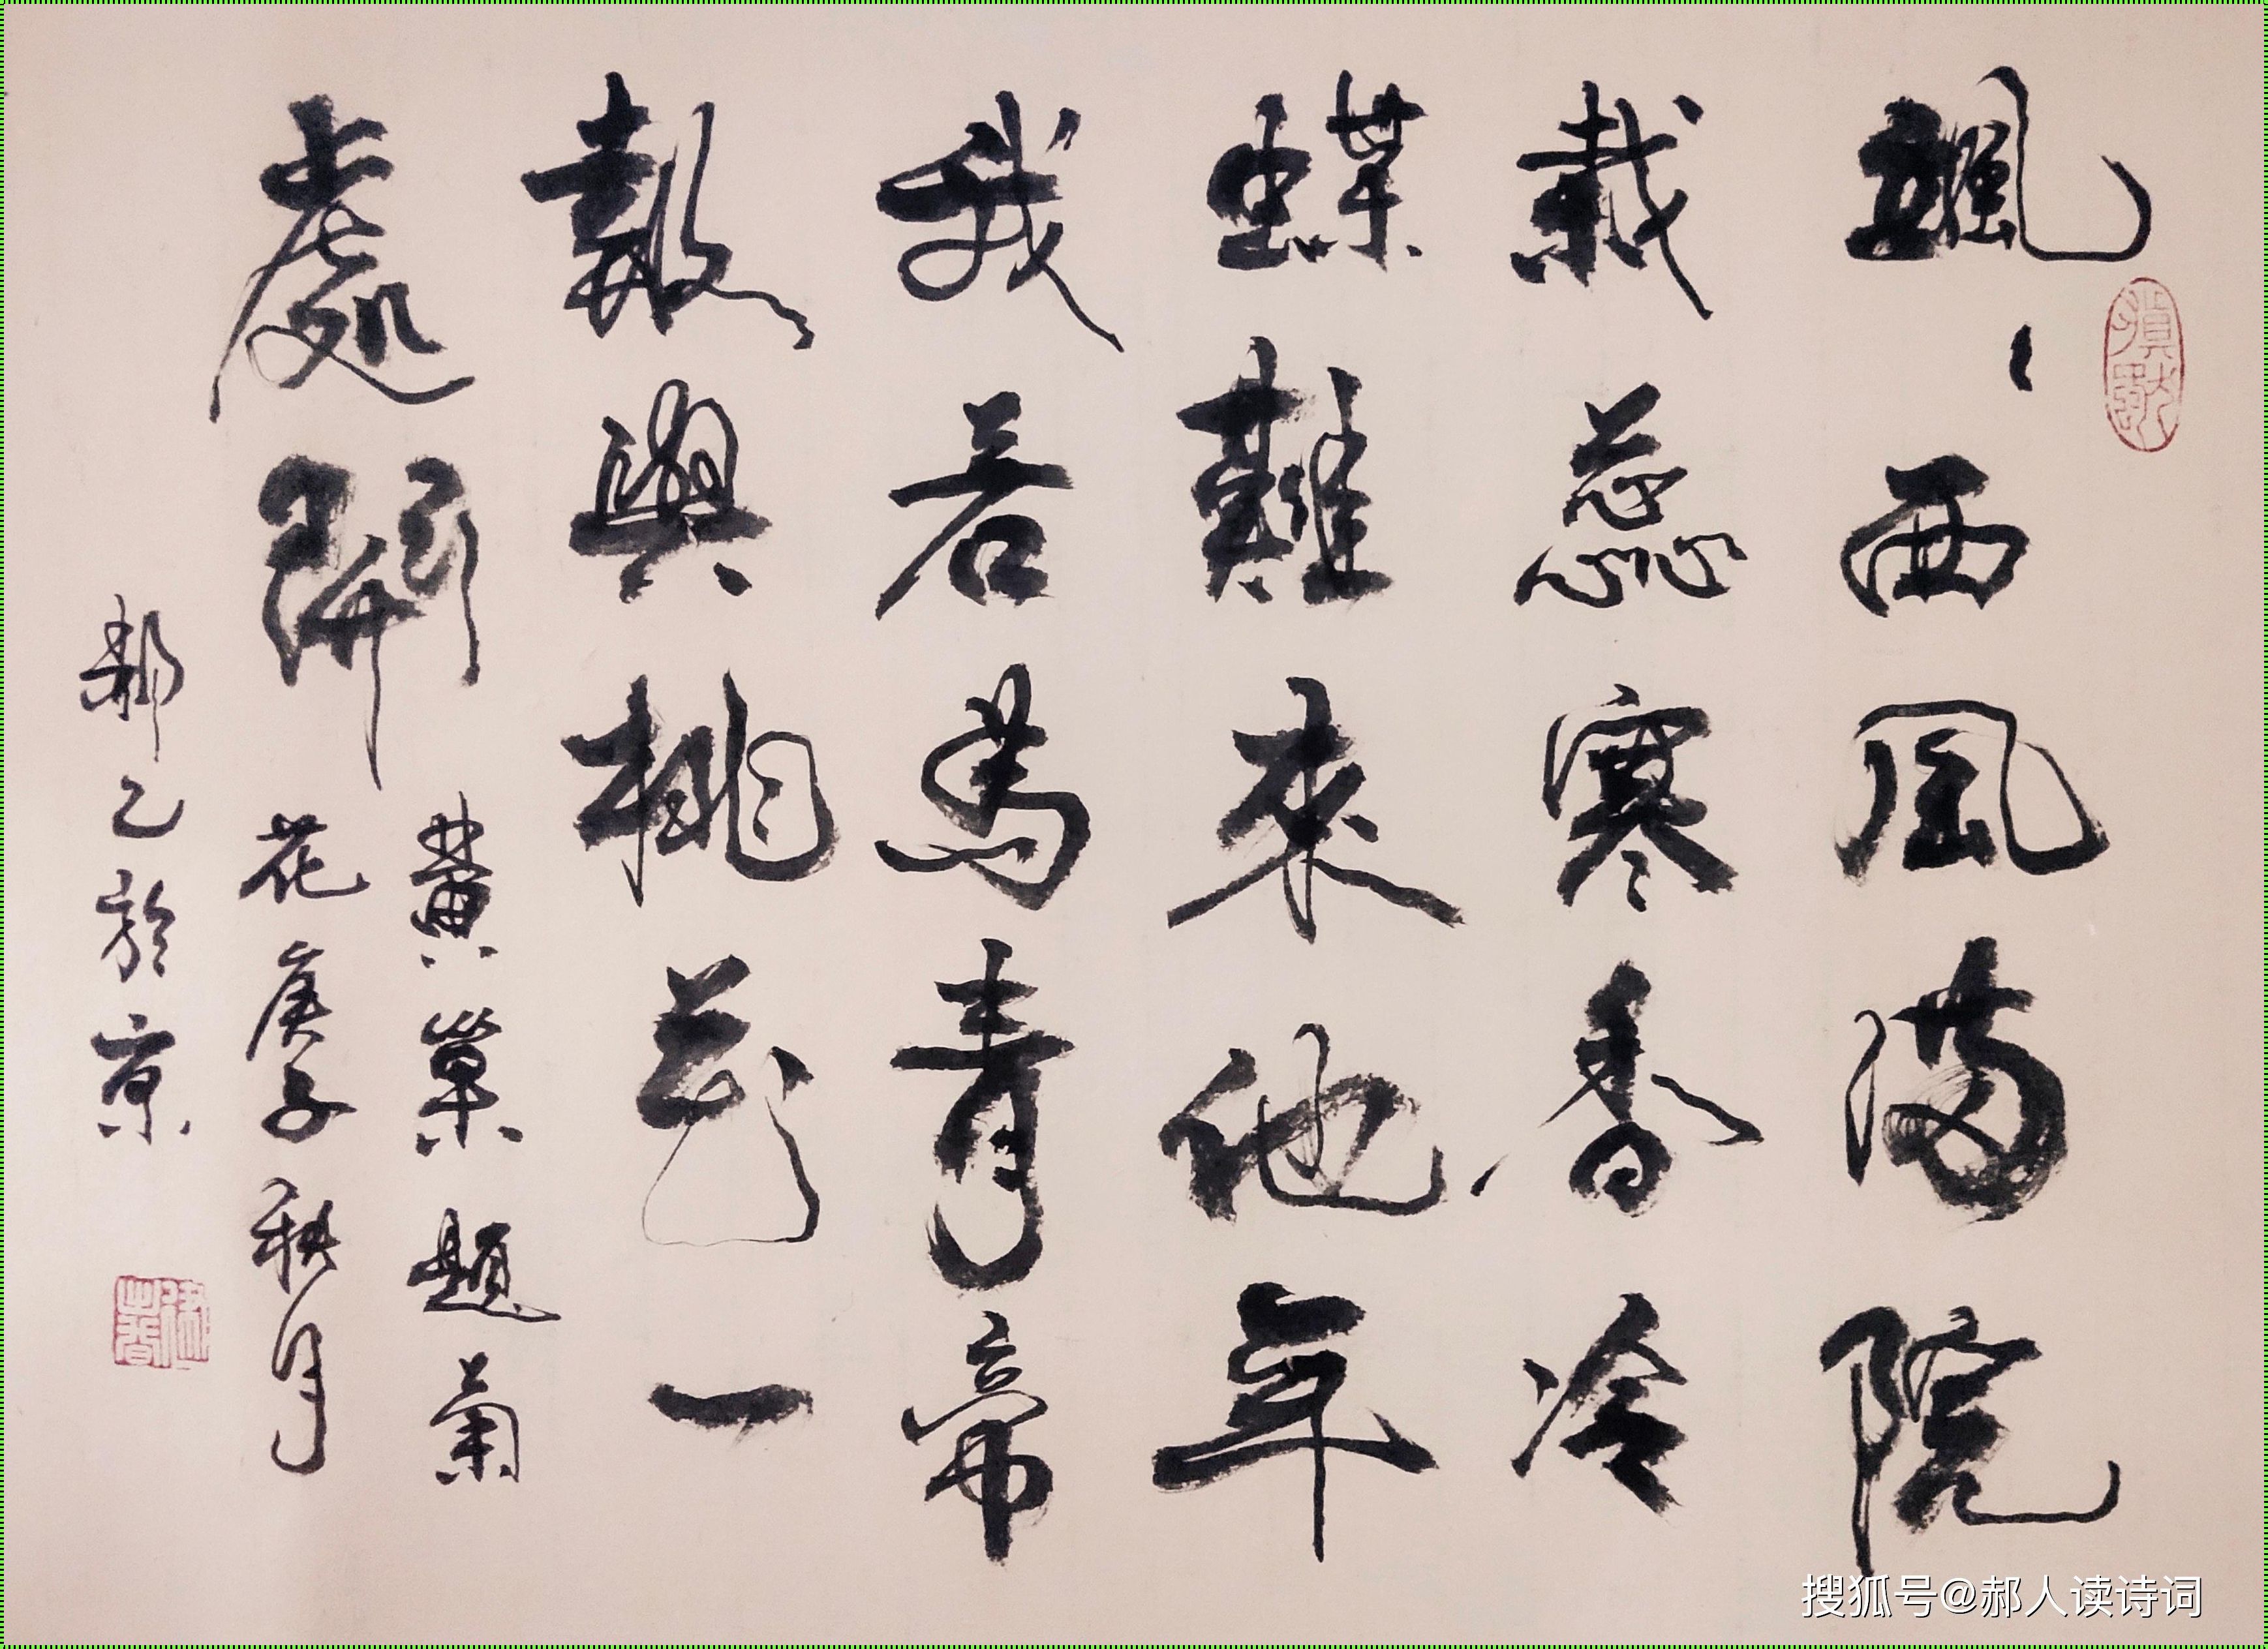 颯〻西風滿院
栽蕊寒香冷
蝶難來他年
我若為青帝
報與桃花一
處開
黄巢題菊
花庚子秋月
郝乙於京
搜狐号@郝人读诗词